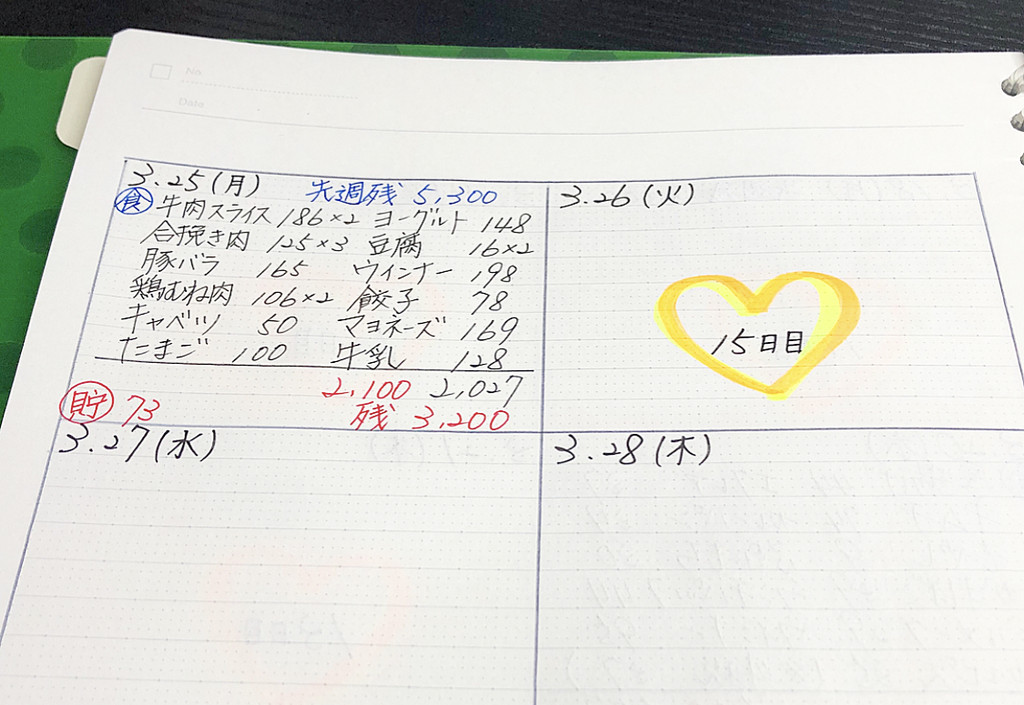 No.
Date
3.25(月) 先週残 5,300
食 牛肉スライス 186×2 ヨーグルト 148
合挽き肉 125×3 豆腐 16×2
豚バラ 165 ウインナー 198
鶏むね肉 106×2 餃子 78
キャベツ 50 マヨネーズ 169
たまご 100 牛乳 128
2,100 2,027
貯 73 残 3,200
3.26(火)
15日目
3.27(水)
3.28(木)